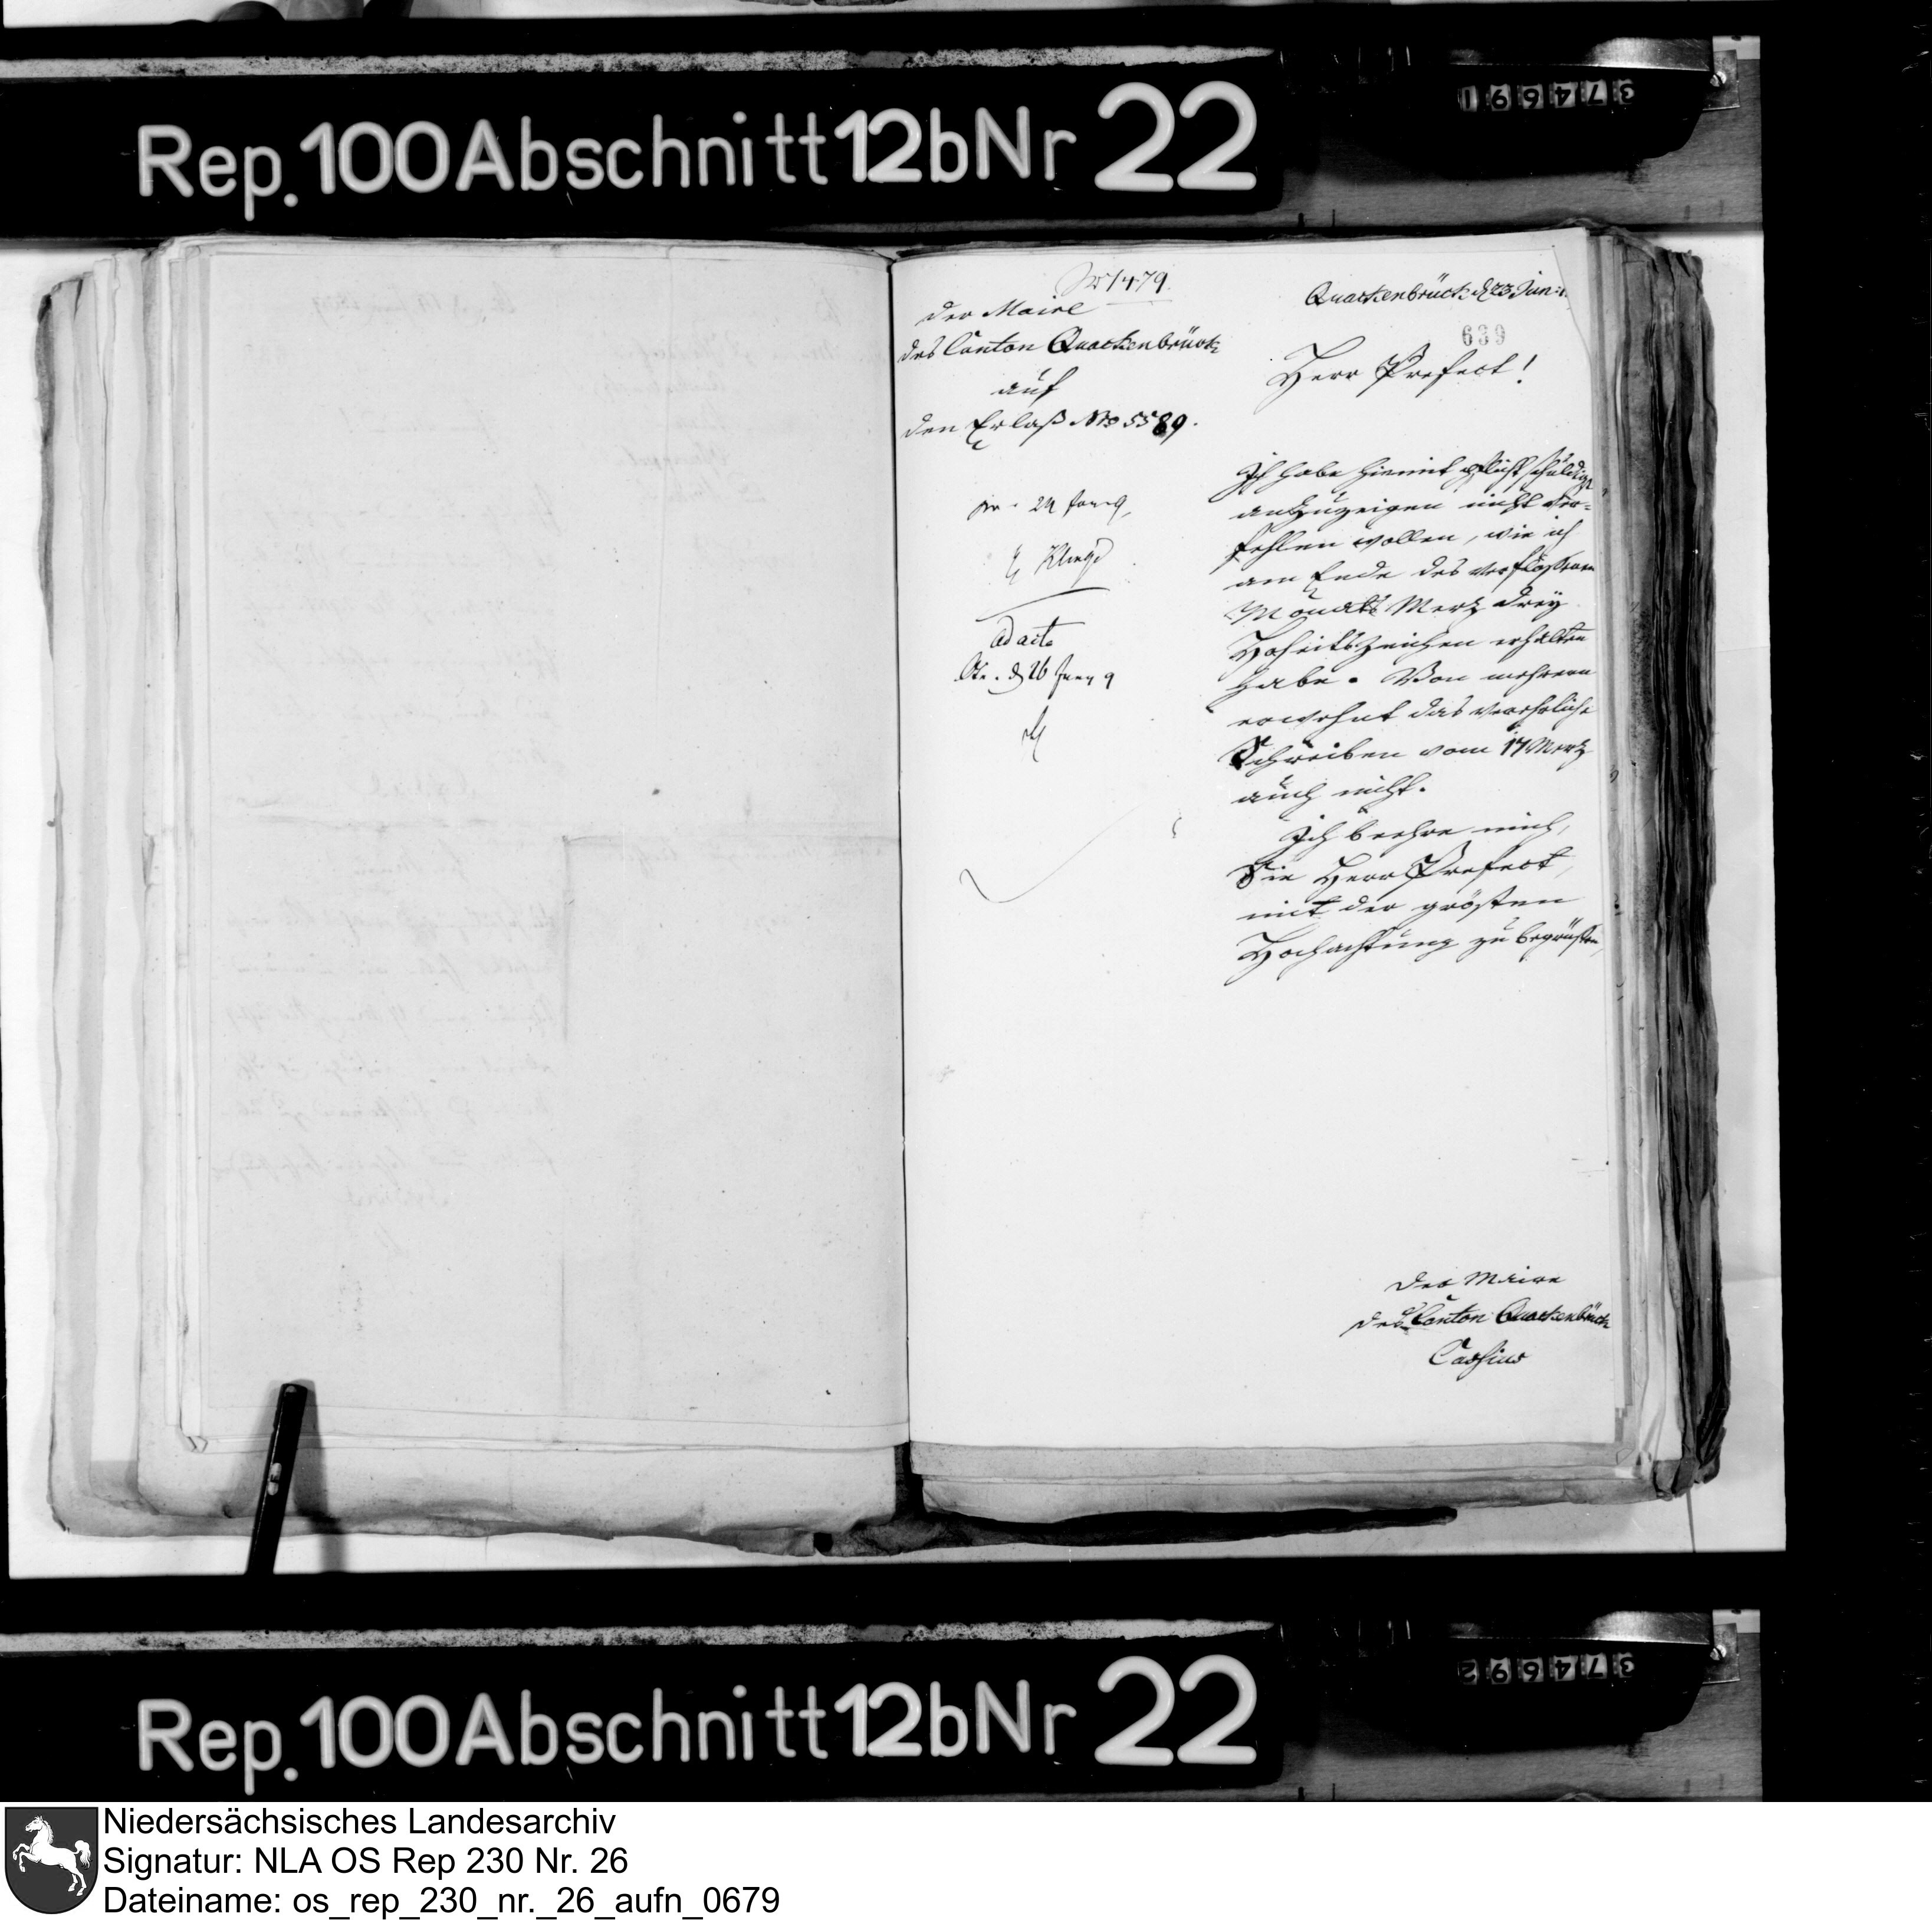 Rep. 100 Abschnitt 12b Nr 22
374691
No 1479.
Der Maire
des Canton Quackenbrück
auf
den Erlaß No 5589.
ad acta
Quackenbrück d 23 Jun:
639
Herr Prefect!
Ich habe hiemit pflichtschuldigst
anzuzeigen nicht ver=
fehlen wollen, wie ich
am Ende des verfloßenen
Monats Merz drey
Hoheitszeichen erhalten
habe. Von mehrern
erwehnt das verehrliche
Schreiben vom 17 Merz
auch nicht.
Ich beehre mich,
Sie Herr Prefect,
mit der grösten
Hochachtung zu begrüßen,
Der Maire
des Canton Quackenbrück
Rep. 100 Abschnitt 12b Nr 22
374692
Niedersächsisches Landesarchiv
Signatur: NLA OS Rep 230 Nr. 26
Dateiname: os_rep_230_nr._26_aufn_0679